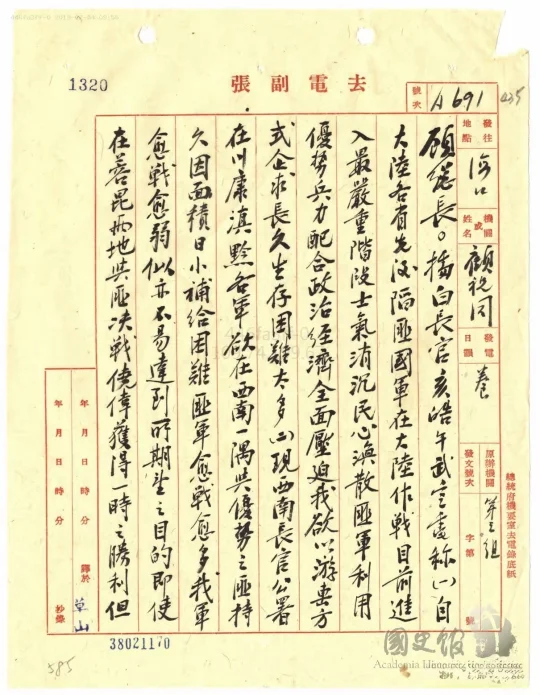 1320
去電副張
號次
A691
435
發往地點
海口
機關或姓名
顧祝同
發電日韻
卷
原辦機關
第三組
發文號次
字第 號
總統府機要室去電錄底紙
顧總長。據白長官亥皓午武言虞稱(一)自
大陸各省先後陷匪國軍在大陸作戰目前進
入最嚴重階段士氣消沉民心渙散匪軍利用
優勢兵力配合政治經濟全面壓迫我欲以游擊方
式企求長久生存困難太多(二)現西南長官公署
在川康滇黔各軍欲在西南一隅與優勢之匪持
久因面積日小補給困難匪軍愈戰愈多我軍
愈戰愈弱似亦不易達到所期望之目的即使
在蓉昆兩地與匪決戰僥倖獲得一時之勝利但
年 月 日 時 分 譯於
草山
年 月 日 時 分 抄錄
38021170
585
國史館
Academia Historica